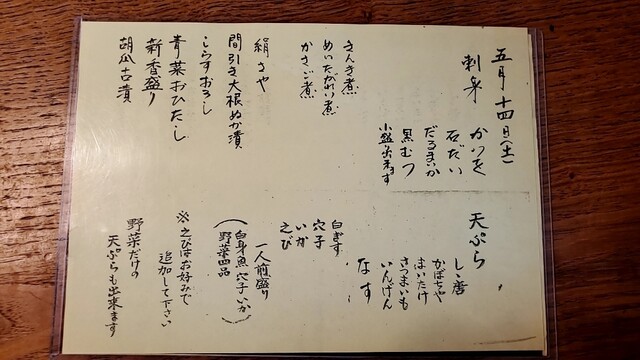 五月十四日(土)
刺身
かつを
石だい
だるまいか
黒むつ
小盛出来ます
きんき煮
めいたがれい煮
かさご煮
絹さや
間引き大根ぬか漬
しらすおろし
青菜おひたし
新香盛り
胡瓜古漬
天ぷら
しし唐
かぼちゃ
まいたけ
さつまいも
いんげん
なす
白ぎす
穴子
いか
えび
一人前盛り
(白身魚 穴子 いか
野菜四品)
※えびはお好みで
追加して下さい
野菜だけの
天ぷらも出来ます